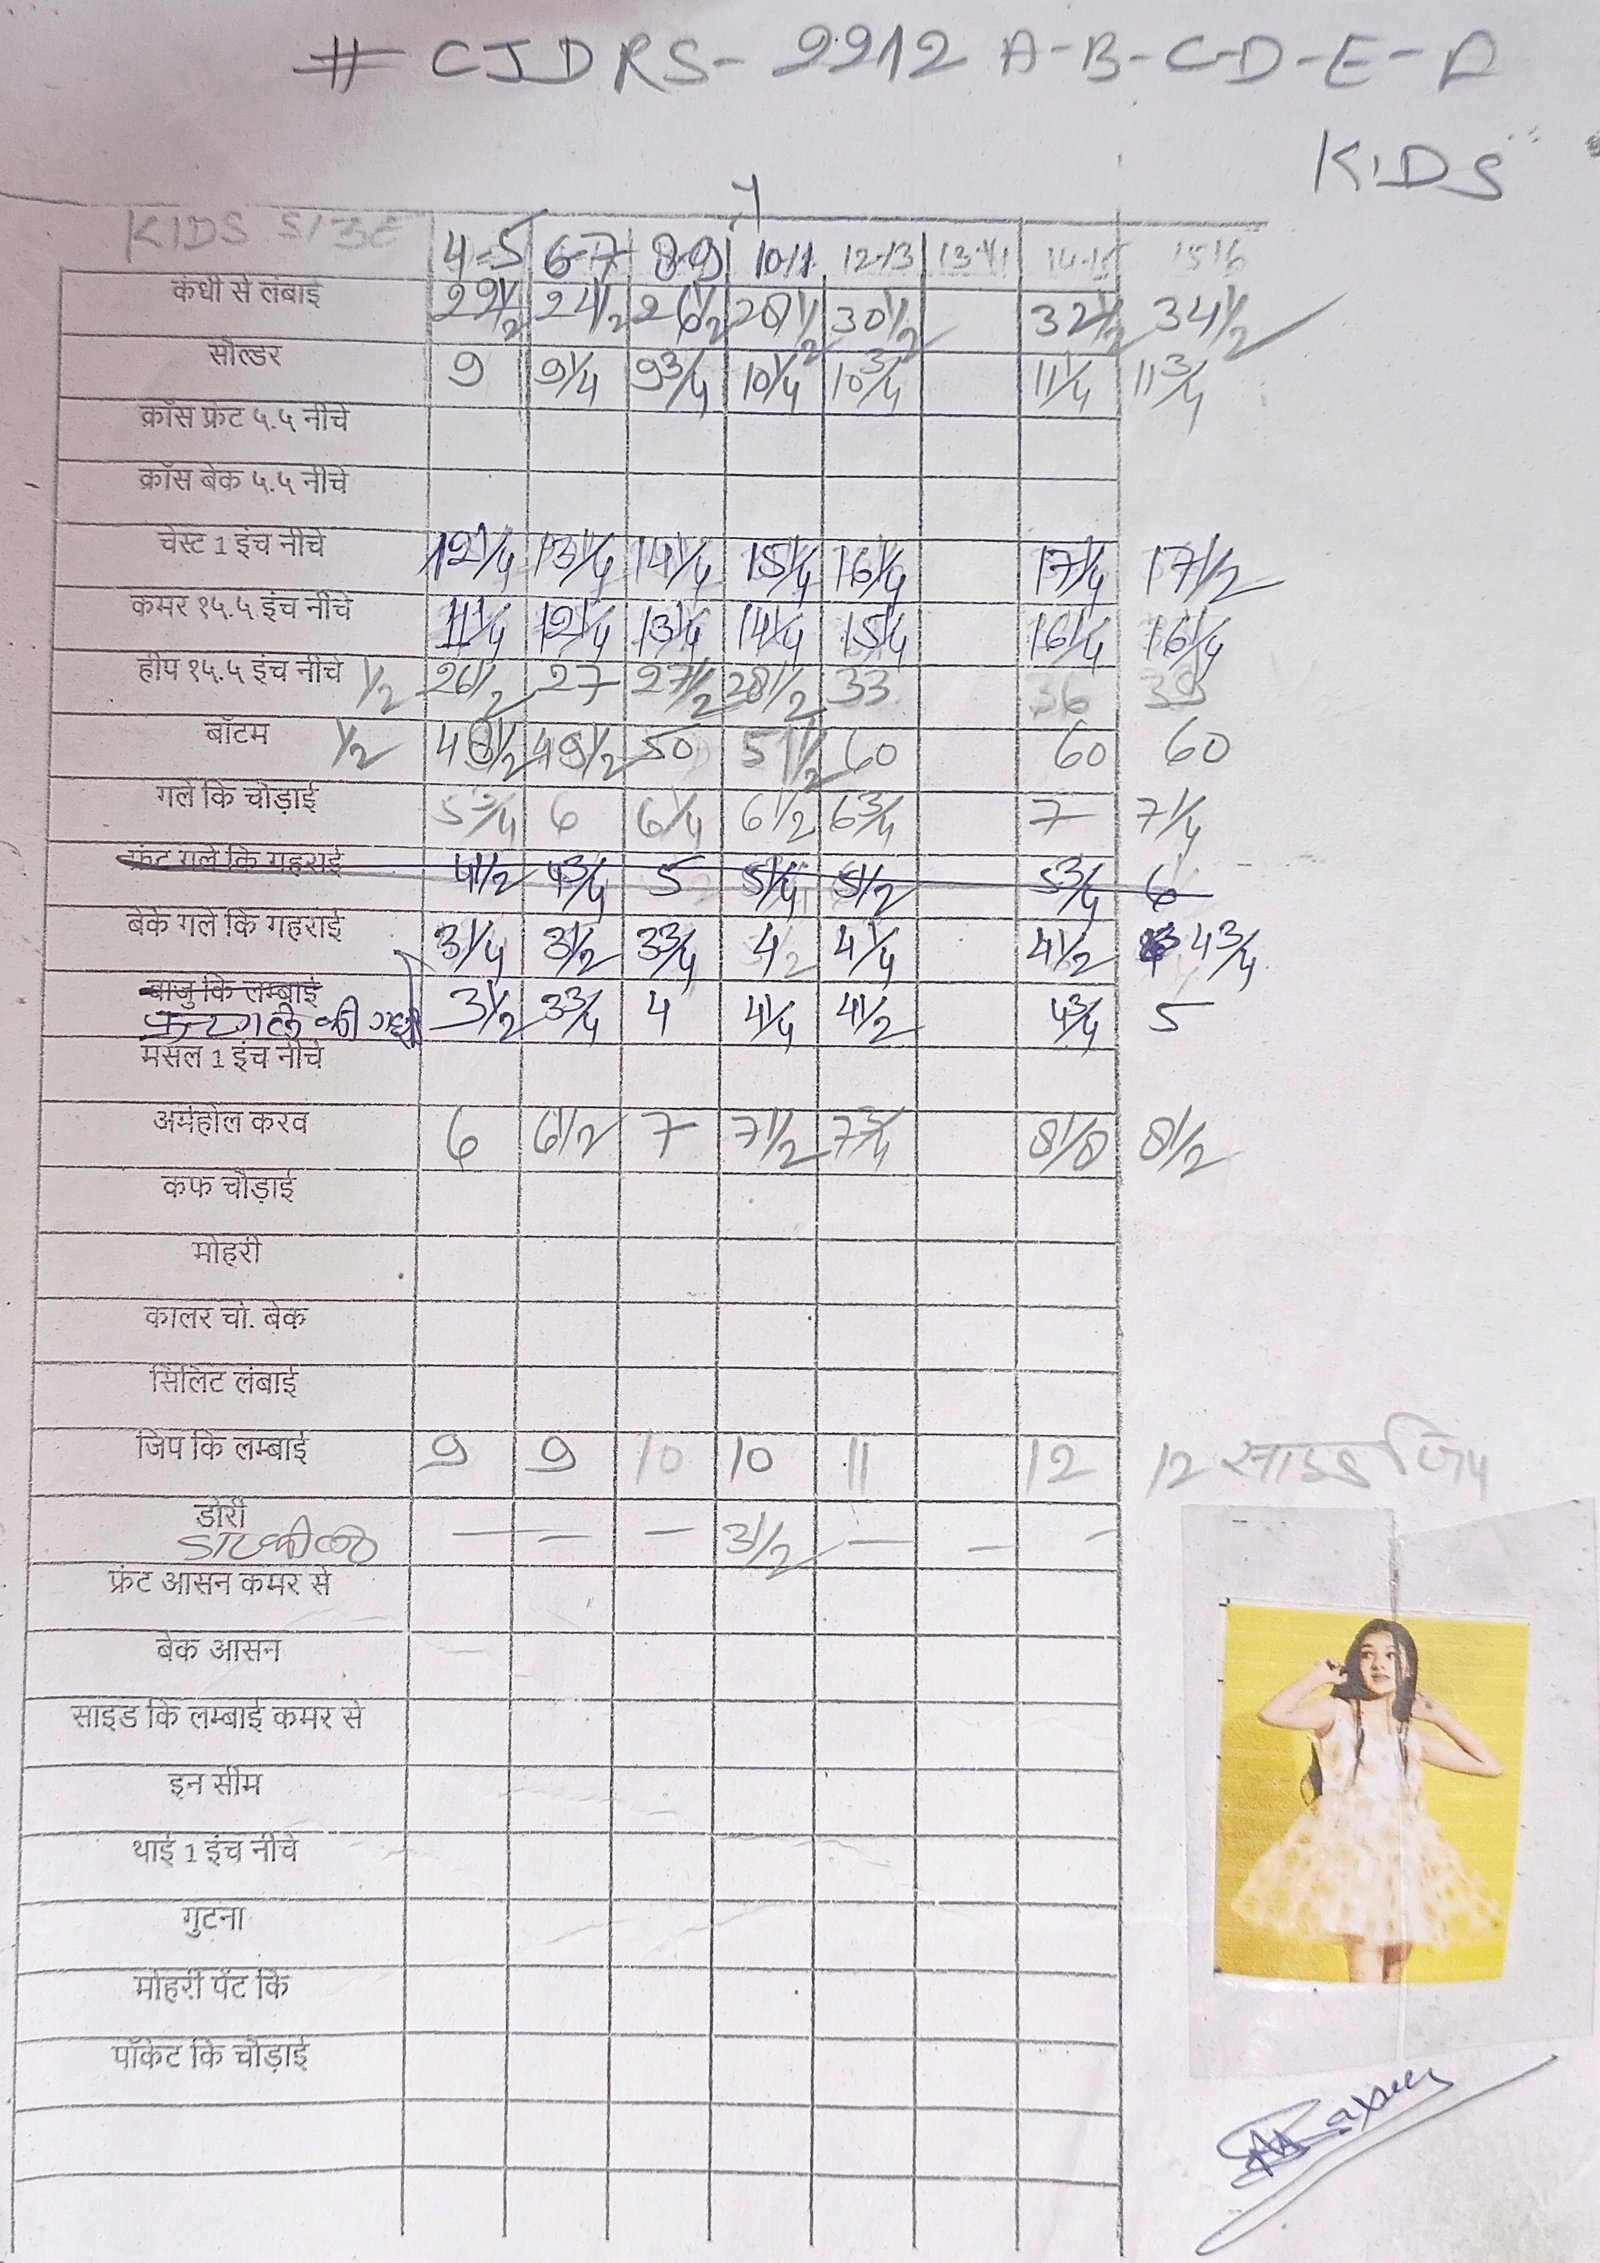 # CJDRS- 2212 A-B-C-D-E-
KIDS
KIDS SIZE 4-5 6-7 8-9 10-11 12-13 14-15 15-16
कंधी से लंबाई 22 1/2 24 1/2 26 1/2 28 1/2 30 1/2 32 1/2 34 1/2
सोल्डर 9 9 1/4 9 3/4 10 1/4 10 3/4 11 1/4 11 3/4
क्रॉस फ्रंट ५.५ नीचे
क्रॉस बेक ५.५ नीचे
चेस्ट 1 इंच नीचे 12 1/4 13 1/4 14 1/4 15 1/4 16 1/4 17 1/4 17 1/2
कमर १५.५ इंच नीचे 11 1/4 12 1/4 13 1/4 14 1/4 15 1/4 16 1/4 16 1/4
हीप १५.५ इंच नीचे 1/2 26 1/2 27 27 1/2 28 1/2 33 36
बॉटम 1/2 48 1/2 49 1/2 50 51 1/2 60 60 60
गले कि चौड़ाई 5 3/4 6 6 1/4 6 1/2 6 3/4 7 7 1/4
फ्रंट गले कि गहराई 4 1/2 4 3/4 5 5 1/4 5 1/2 5 3/4 6
बेक गले कि गहराई 3 1/4 3 1/2 3 3/4 4 4 1/4 4 1/2 4 3/4
बाजु कि लम्बाई
3 1/2 3 3/4 4 4 1/4 4 1/2 4 3/4 5
मसल 1 इंच नीचे
अर्महोल करव 6 6 1/2 7 7 1/2 7 3/4 8 1/8 8 1/2
कफ चौड़ाई
मोहरी
कालर चो. बेक
सिलिट लंबाई
जिप कि लम्बाई 9 9 10 10 11 12 12 साइड जिप
डोरी
— — — 3 1/2 — — —
फ्रंट आसन कमर से
बेक आसन
साइड कि लम्बाई कमर से
इन सीम
थाई 1 इंच नीचे
गुटना
मोहरी पेंट कि
पॉकेट कि चौड़ाई